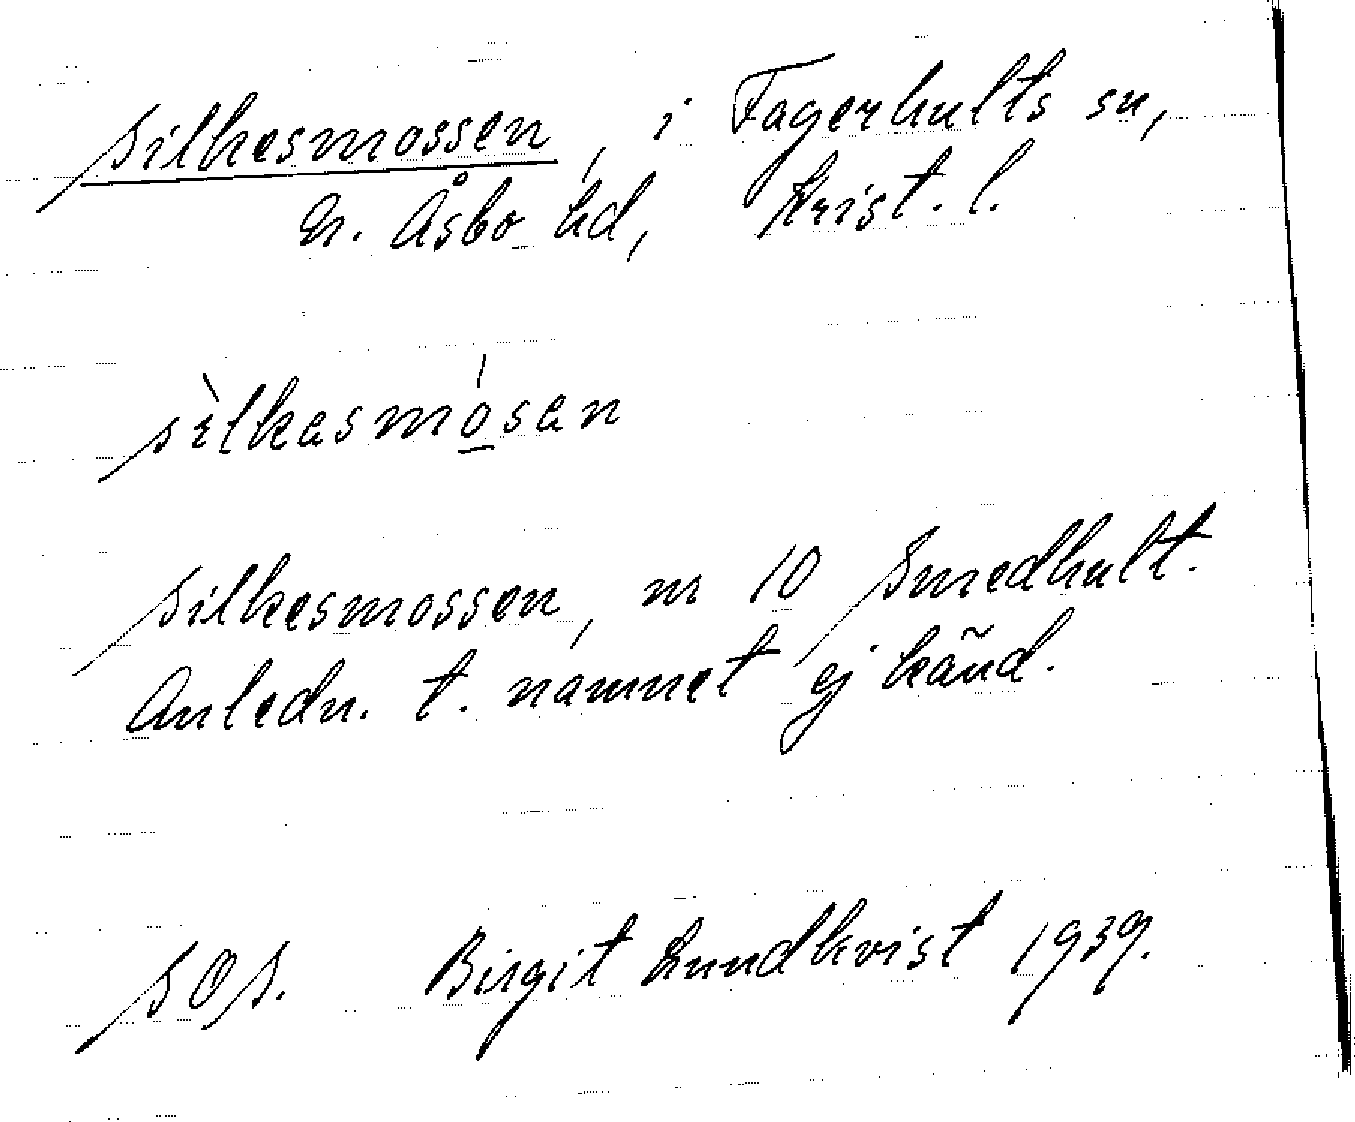 Silkesmossen, i Fagerhults sn,
N. Åsbo hd, Krist. l.
sìlkasmósan
Silkesmossen, m 10 Smedhult.
Anledn. t. namnet ej känd.
SOS. Birgit Lundkvist 1939.